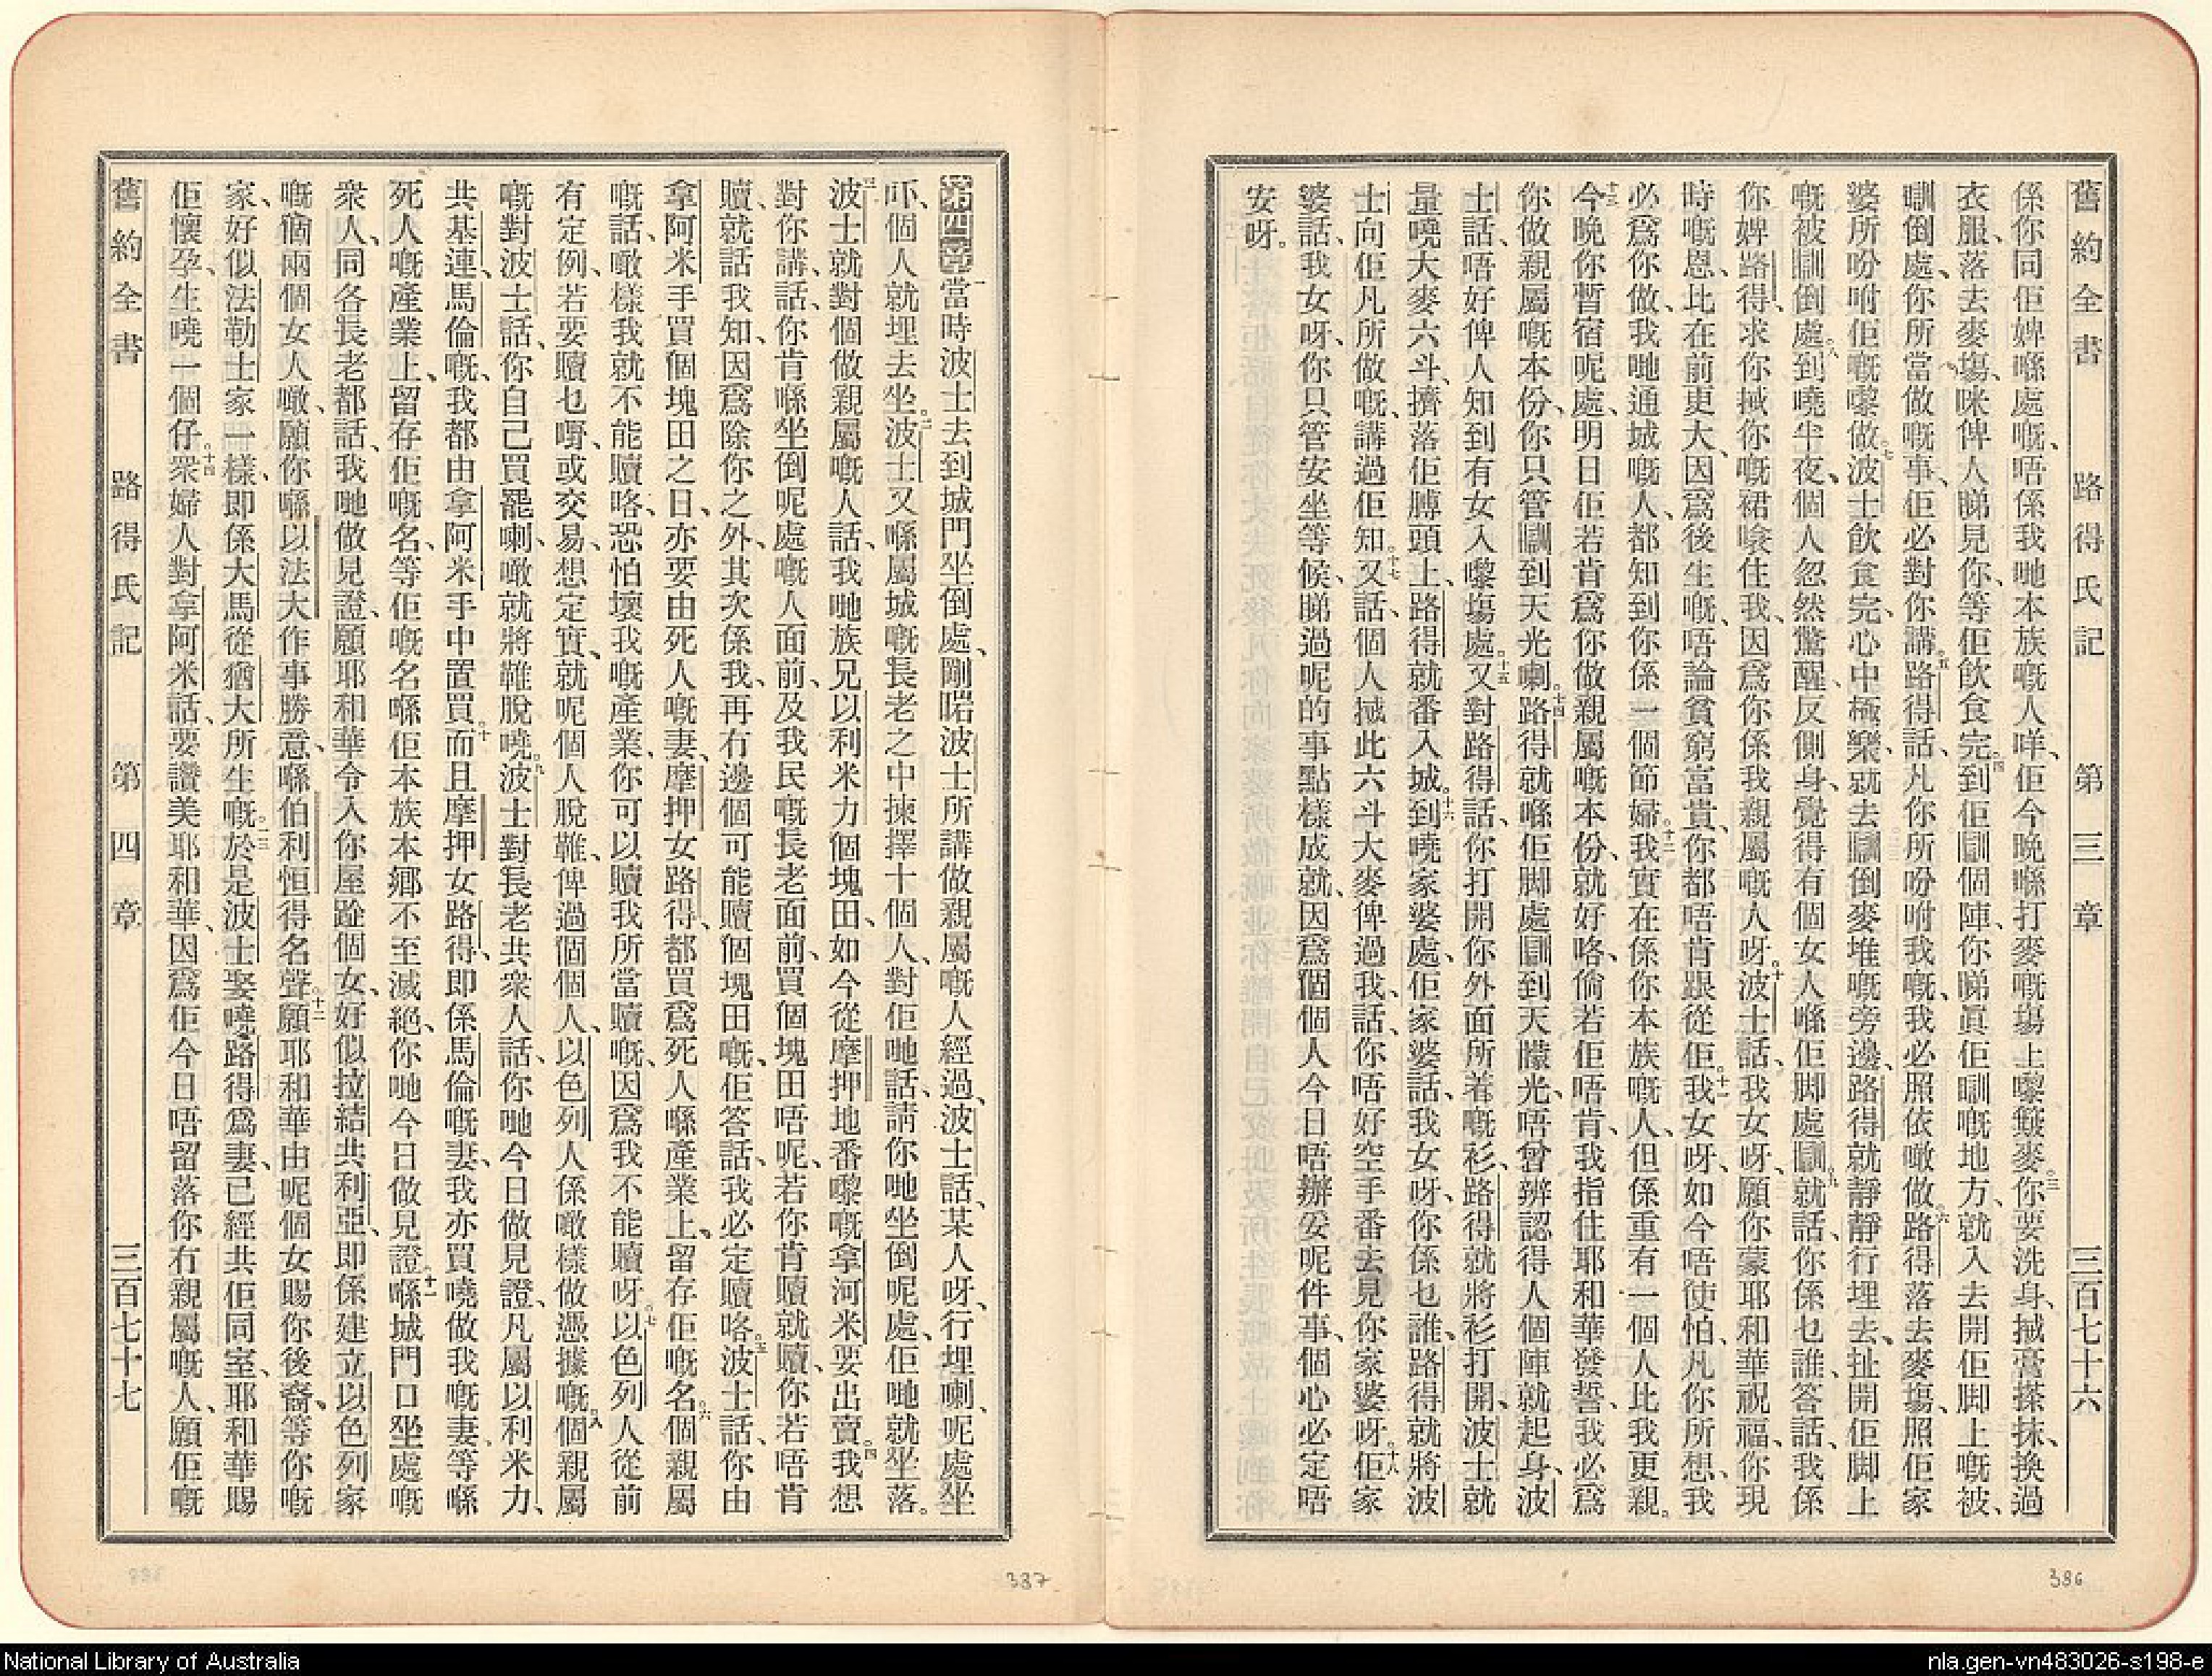 舊約全書 路得氏記 第三章 三百七十六
係你同佢婢喺處嘅、唔係我哋本族嘅人咩、佢今晚喺打麥嘅塲上嚟簸麥。三你要洗身、搣膏搽抹、換過
衣服、落去麥塲、咪俾人睇見你、等佢飲食完。四到佢瞓個陣、你睇眞佢瞓嘅地方、就入去開佢脚上嘅被、
瞓倒處、你所當做嘅事、佢必對你講。五路得話、凡你所吩咐我嘅、我必照依噉做。六路得落去麥塲、照佢家
婆所吩咐佢嘅嚟做。七波士飲食完、心中極樂、就去瞓倒麥堆嘅旁邊、路得就靜靜行埋去、扯開佢脚上
嘅被瞓倒處。八到嘵半夜、個人忽然驚醒、反側身、覺得有個女人喺佢脚處瞓。九就話、你係乜誰、答話、我係
你婢路得、求你搣你嘅裙㗎住我、因爲你係我親屬嘅人呀。十波士話、我女呀、願你蒙耶和華祝福、你現
時嘅恩、比在前更大、因爲後生嘅、唔論貧窮富貴、你都唔肯跟從佢。十一我女呀、如今唔使怕、凡你所想、我
必爲你做、我哋通城嘅人、都知到你係一個節婦。十二我實在係你本族嘅人、但係重有一個人比我更親。
十三今晚你暫宿呢處、明日佢若肯爲你做親屬嘅本份、就好咯、倘若佢唔肯、我指住耶和華發誓、我必爲
你做親屬嘅本份、你只管瞓到天光喇。十四路得就喺佢脚處瞓到天矇光、唔曾辨認得人個陣就起身、波
士話、唔好俾人知到有女人嚟塲處。十五又對路得話、你打開你外面所着嘅衫、路得就將衫打開、波士就
量嘵大麥六斗、擠落佢膊頭上、路得就番入城。十六到嘵家婆處、佢家婆話、我女呀、你係乜誰、路得就將波
士向佢凡所做嘅、講過佢知。十七又話、個人搣此六斗大麥俾過我、話、你唔好空手番去見你家婆呀。十八佢家
婆話、我女呀、你只管安坐等候、睇過呢的事點樣成就、因爲個個人今日唔辦妥呢件事、個心必定唔
安呀。
第四章一當時波士去到城門坐倒處、剛啱波士所講做親屬嘅人經過、波士話、某人呀、行埋喇、呢處坐
吓、個人就埋去坐。二波士又喺屬城嘅長老之中揀擇十個人、對佢哋話、請你哋坐倒呢處、佢哋就坐落。
三波士就對個做親屬嘅人話、我哋族兄以利米力個塊田、如今從摩押地番嚟嘅拿河米要出賣。四我想
對你講、話、你肯喺坐倒呢處嘅人面前、及我民嘅長老面前、買個塊田唔呢、若你肯贖就贖、你若唔肯
贖、就話我知、因爲除你之外、其次係我、再冇邊個可能贖個塊田嘅、佢答話、我必定贖咯。五波士話、你由
拿阿米手買個塊田之日、亦要由死人嘅妻、摩押女路得、都買爲死人喺產業上、留存佢嘅名。六個親屬
嘅話、噉樣我就不能贖咯、恐怕壞我嘅產業、你可以贖我所當贖嘅、因爲我不能贖呀。七以色列人從前
有定例、若要贖乜嘢、或交易、想定實、就呢個人脫鞋、俾過個個人、以色列人係噉樣做憑據嘅。八個親屬
嘅對波士話、你自己買罷喇、噉就將鞋脫嘵。九波士對長老共衆人話、你哋今日做見證、凡屬以利米力、
共基連、馬倫嘅、我都由拿阿米手中置買。十而且摩押女路得、即係馬倫嘅妻、我亦買嘵做我嘅妻、等喺
死人嘅產業上、留存佢嘅名、等佢嘅名喺佢本族本鄉不至滅絕、你哋今日做見證。十一喺城門口坐處嘅
衆人、同各長老都話、我哋做見證、願耶和華令入你屋𨂾個女、好似拉結共利亞、即係建立以色列家
嘅個兩個女人噉、願你喺以法大作事勝意、喺伯利恒得名聲。十二願耶和華由呢個女賜你後裔、等你嘅
家、好似法勒士家一樣、即係大馬從猶大所生嘅。十三於是波士娶嘵路得爲妻、已經共佢同室、耶和華賜
佢懷孕、生嘵一個仔。十四衆婦人對拿阿米話、要讚美耶和華、因爲佢今日唔留落你冇親屬嘅人、願佢嘅
舊約全書 路得氏記 第四章 三百七十七
386
387
National Library of Australia
nla.gen-vn483026-s198-e